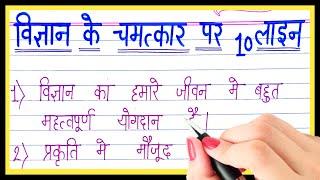 विज्ञान के चमत्कार पर 10 लाइन
1) विज्ञान का हमारे जीवन मे बहुत
महत्वपूर्ण योगदान है।
2) प्रकृति मे मौजूद